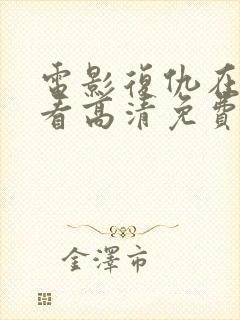 電影復仇在
看高清免費
金澤市